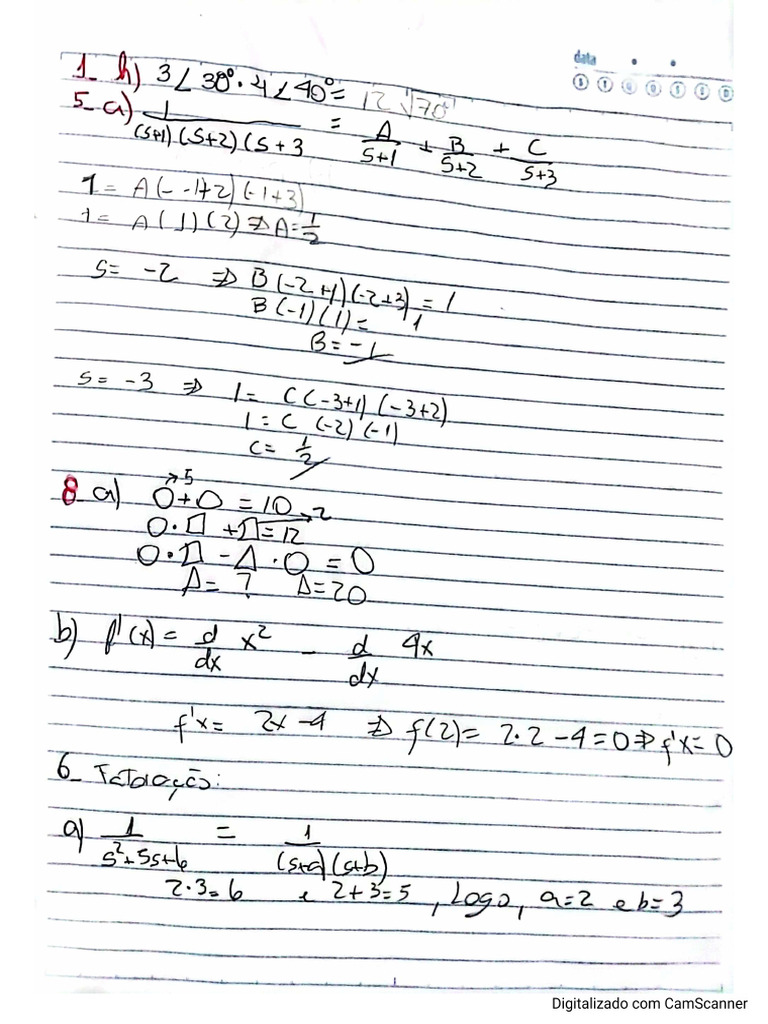 data
1_ h) 3∠30°·4∠40°= 12∠70°
5_a) 1/((s+1)(s+2)(s+3) = A/(s+1) + B/(s+2) + C/(s+3)
1 = A(--1+2)(-1+3)
1 = A(1)(2) ⇒ A=1/2
s= -2 ⇒ B(-2+1)(-2+3) = 1
B(-1)(1)= 1
B=-1
s= -3 ⇒ 1= C(-3+1)(-3+2)
1=C (-2)(-1)
C= 1/2
→5
8_a) O+O =10
O·□ +□=12 →2
O·□ -Δ·O = O
Δ= ? Δ=20
b) f'(x) = d/dx x² - d/dx 4x
f'x= 2x-4 ⇒ f(2)= 2·2-4=0⇒f'x=0
6_ Fatoração:
a) 1/(s²+5s+6) = 1/((s+a)(s+b))
2·3=6 e 2+3=5, Logo, a=2 e b=3
Digitalizado com CamScanner